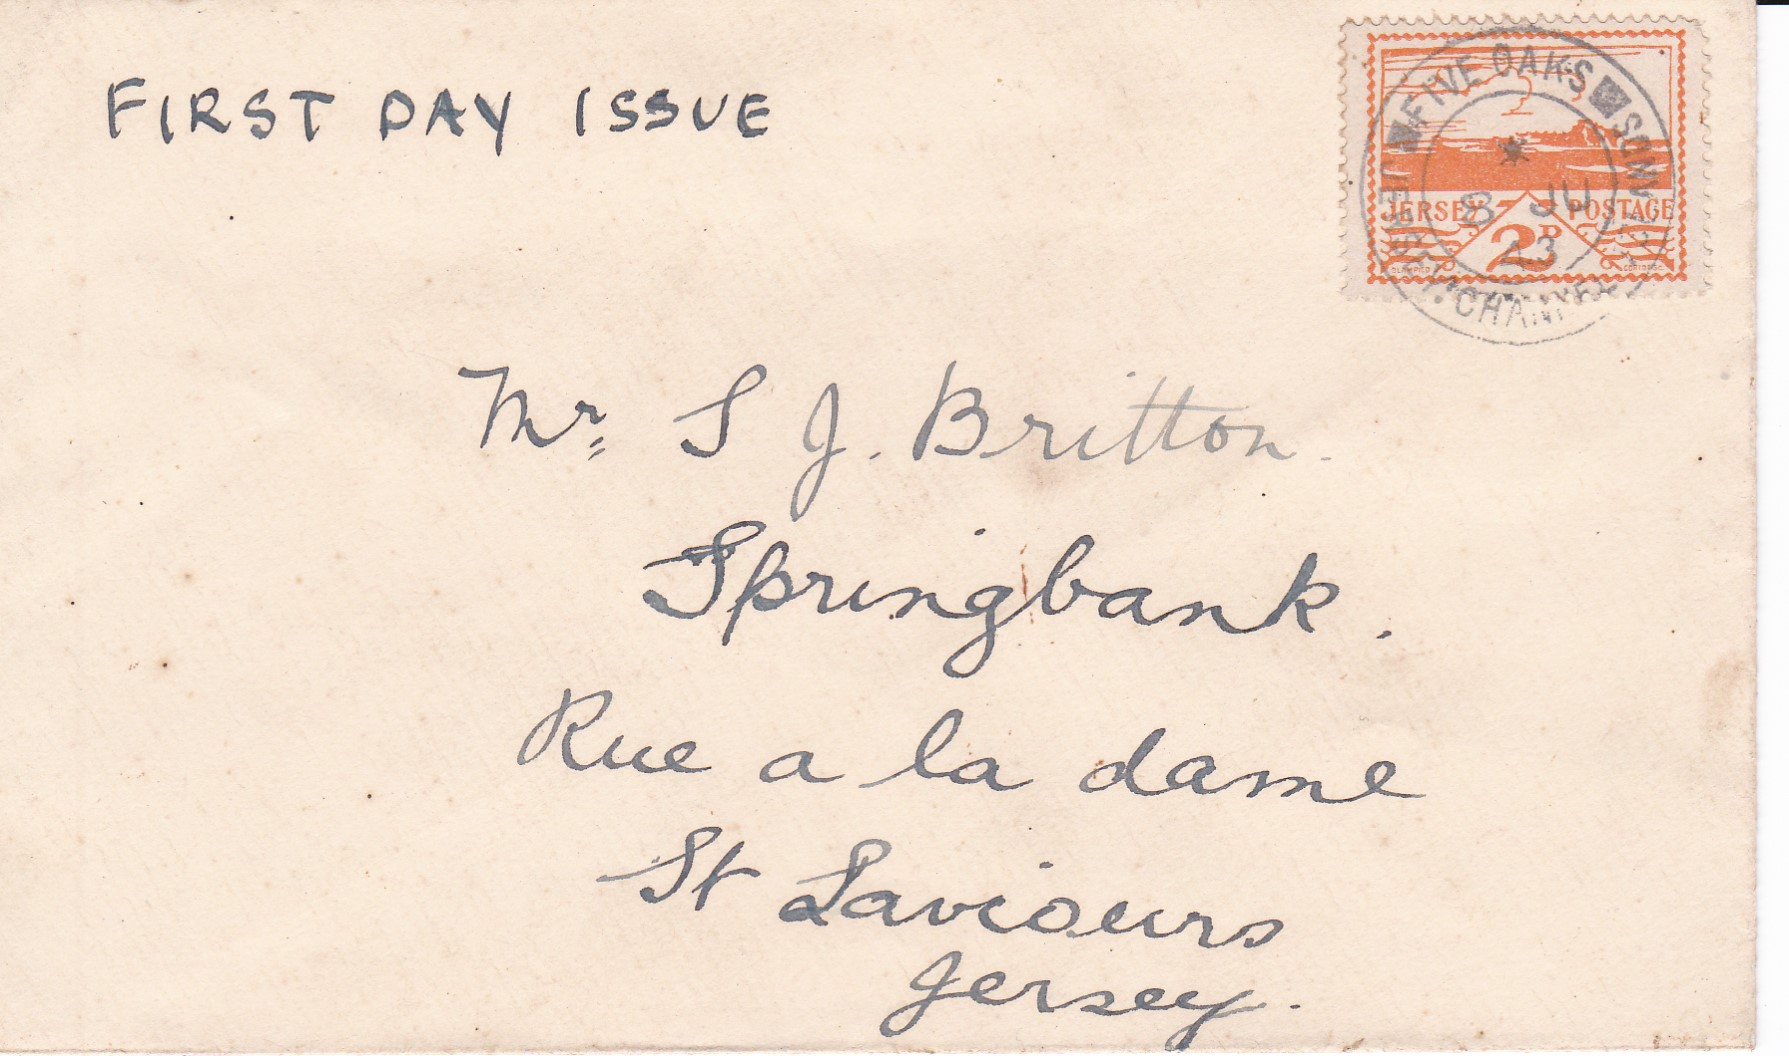 FIRST DAY ISSUE
FIVE OAKS
JERSEY. CHANNEL ISLANDS
8 JU
43
JERSEY POSTAGE
2D
Mr. S J. Britton.
Springbank.
Rue a la dame
St Saviours
Jersey.